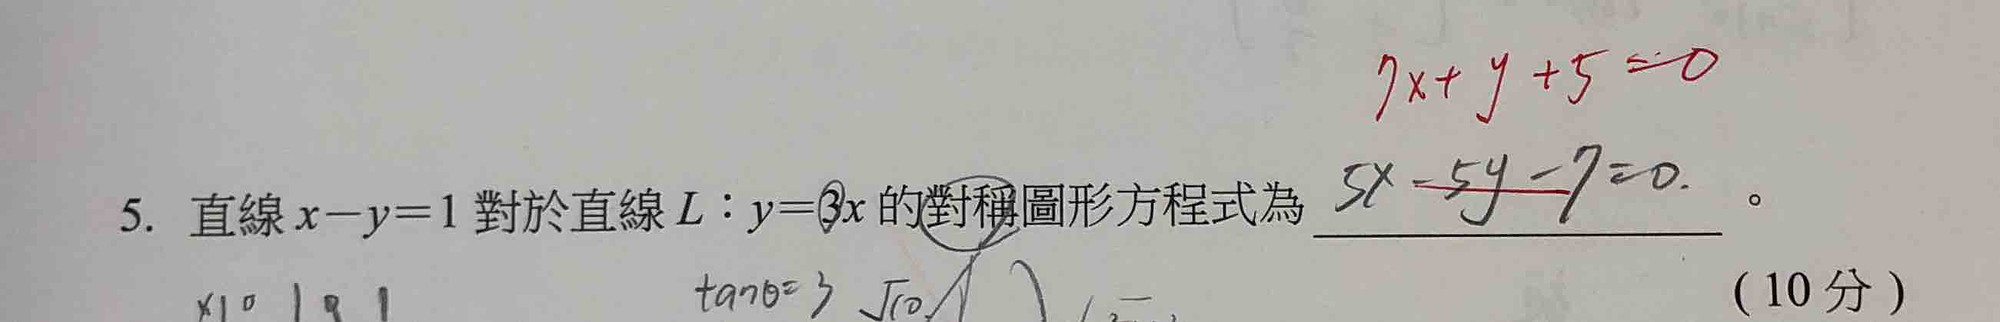 7x+y+5=0
5. 直線 x－y＝1 對於直線 L：y＝3x 的對稱圖形方程式為 5x-5y-7=0. 。
（10 分）
tanθ=3 √10